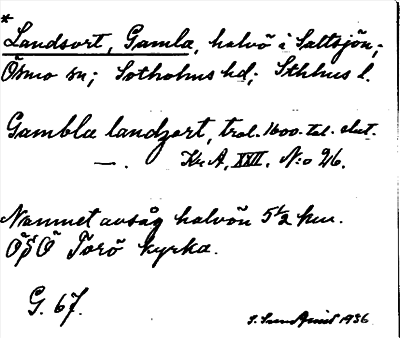 *
Landsort, Gamla, halvö i Saltsjön;
Ösmo sn; Sotholms hd; Sthlms l.
Gambla landzort, trol. 1600-tal. slut.
—. Kr A, XXII. N:o 26.
Namnet avsåg halvön 5 1/2 km.
ÖSÖ Torö kyrka.
G. 67.
1936